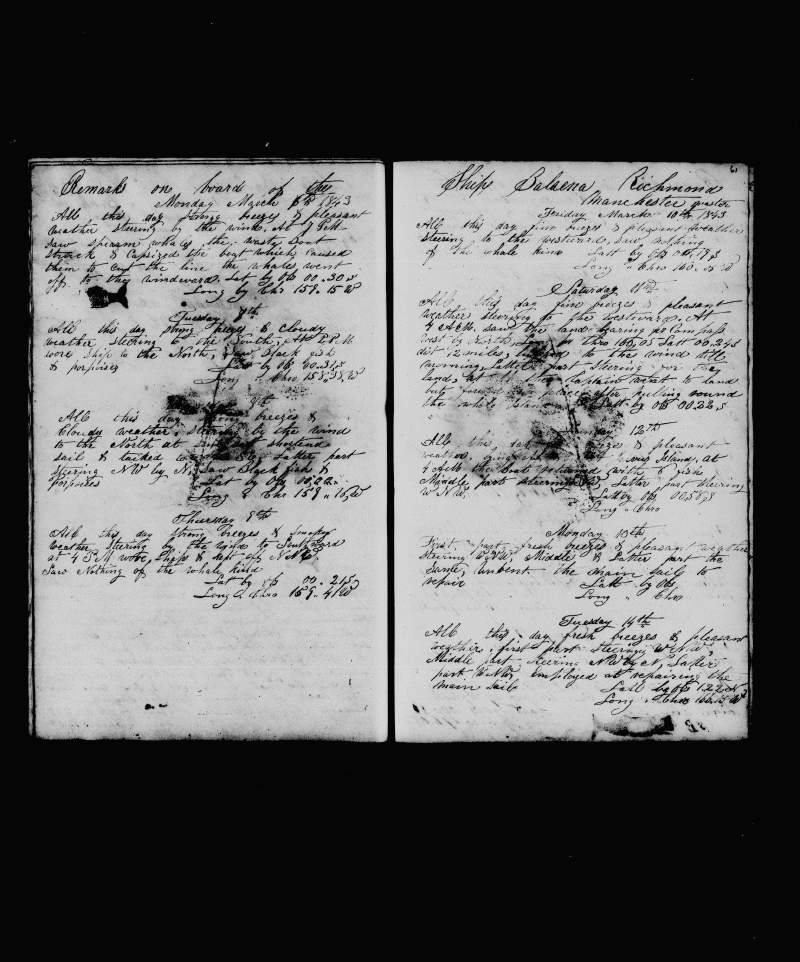 Remarks on board of the
Monday March 6th 1843
All this day strong breezes & pleasant
weather steering by the wind, At 7 PM
saw sperm whales, the waist boat
struck & capsized the boat which caused
them to cut the line the whales went
off to the windward. Latt by Obs 00.30 S
Long by Chr 159.15 W
Tuesday 7th
All this day strong breezes & Cloudy
weather steering to the South, At P.M
wore Ship to the North, Saw Black fish
& porpoises Latt by Ob 00.31 S
Long " Chro 158,38, W
8th
All this day strong breezes &
Cloudy weather, steering by the wind
to the North at shortend
sail & tacked Latter part
steering NW by N, Saw Black fish &
porpoises Latt by Obs 00,22 S
Long " Chr 159 " 16, W
Thursday 9th
All this day strong breezes & smokey
weather steering by the wind to Southward
at 4 P.M wore, Ship & kept off NNW,
Saw Nothing of the whale kind
Latt by obs 00.21 S
Long " Chro 159.41 W
61
Ship Balaena Richmond
Manchester master
Friday March 10th 1843
All this day fine breezes & pleasant weather
steering to the westward, saw nothing
of the whale kind Latt by Obs 00,19 S
Long " Chro 160. W
Saturday 11th
All this day fine breezes & pleasant
weather steering to the westward. At
4 A.M. saw the land bearing pr Compass
West by North, Long pr Chro 160,05 Latt 00.24 S
dist 12 miles, to the wind till
morning, Latter part steering for the
land, at the Captain went to land
but after pulling round
the whole Island Latt by Obs 00.22, S
12th
All the day & pleasant
weather, Island, at
4 AM the boat returned with 6 fish
Middle part steering W, Latter part steering
W N W. Latt by Obs 00.58, S
Long " Chro
Monday 13th
First part, fresh breezes & pleasant weather
steering W N W, Middle & Latter part the
same, unbent the main sail to
repair Latt by Obs
Long " Chro
Tuesday 14th
All this day fresh breezes & pleasant
weather, first part steering W N W,
Middle part steering NW by N, Latter
part W NW, employed at repairing the
main sail Latt by Obs 1.22
Long " Chro 166.15, W